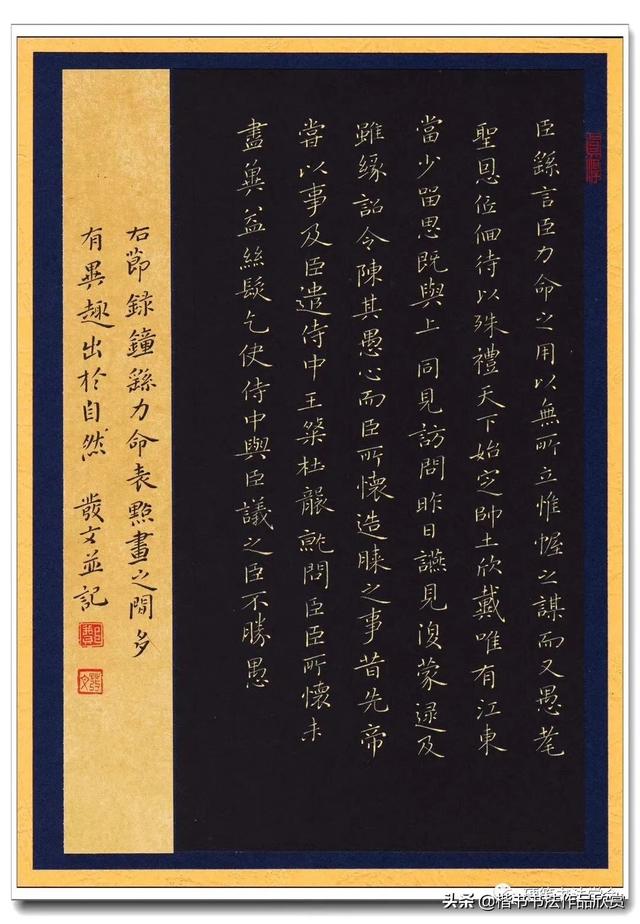 臣繇言臣力命之用以無所立惟幄之謀而又愚耄
聖恩位佪待以殊禮天下始定帥土欣戴唯有江東
當少留思既與上同見訪問昨日讌見須蒙逯及
雖緣詔令陳其愚心而臣所懷造膝之事昔先帝
嘗以事及臣遣侍中王粲杜襲就問臣臣所懷未
盡冀益絲髮乞使侍中與臣議之臣不勝愚
右節録鐘繇力命表點畫之間多
有異趣出於自然 發文並記
头条 @楷书书法作品欣赏